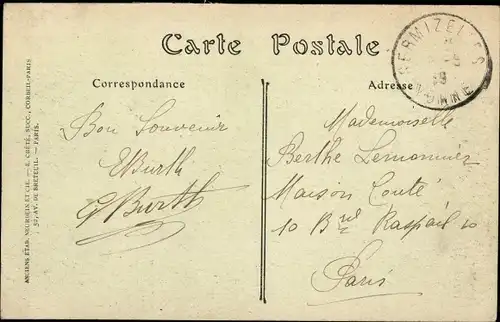 Carte Postale
Correspondance
Adresse
SERMIZELLES
YONNE
Bon Souvenir
EBurth
GBurth
Mademoiselle
Berthe Lemonnier
Maison Conté
10 Bᵛᵈ Raspail 10
Paris
ANCIENS ETAB. NEURDEIN ET CIE. — E. CRÉTÉ, SUCC., CORBEIL-PARIS
52, AV. DE BRETEUIL. — PARIS.